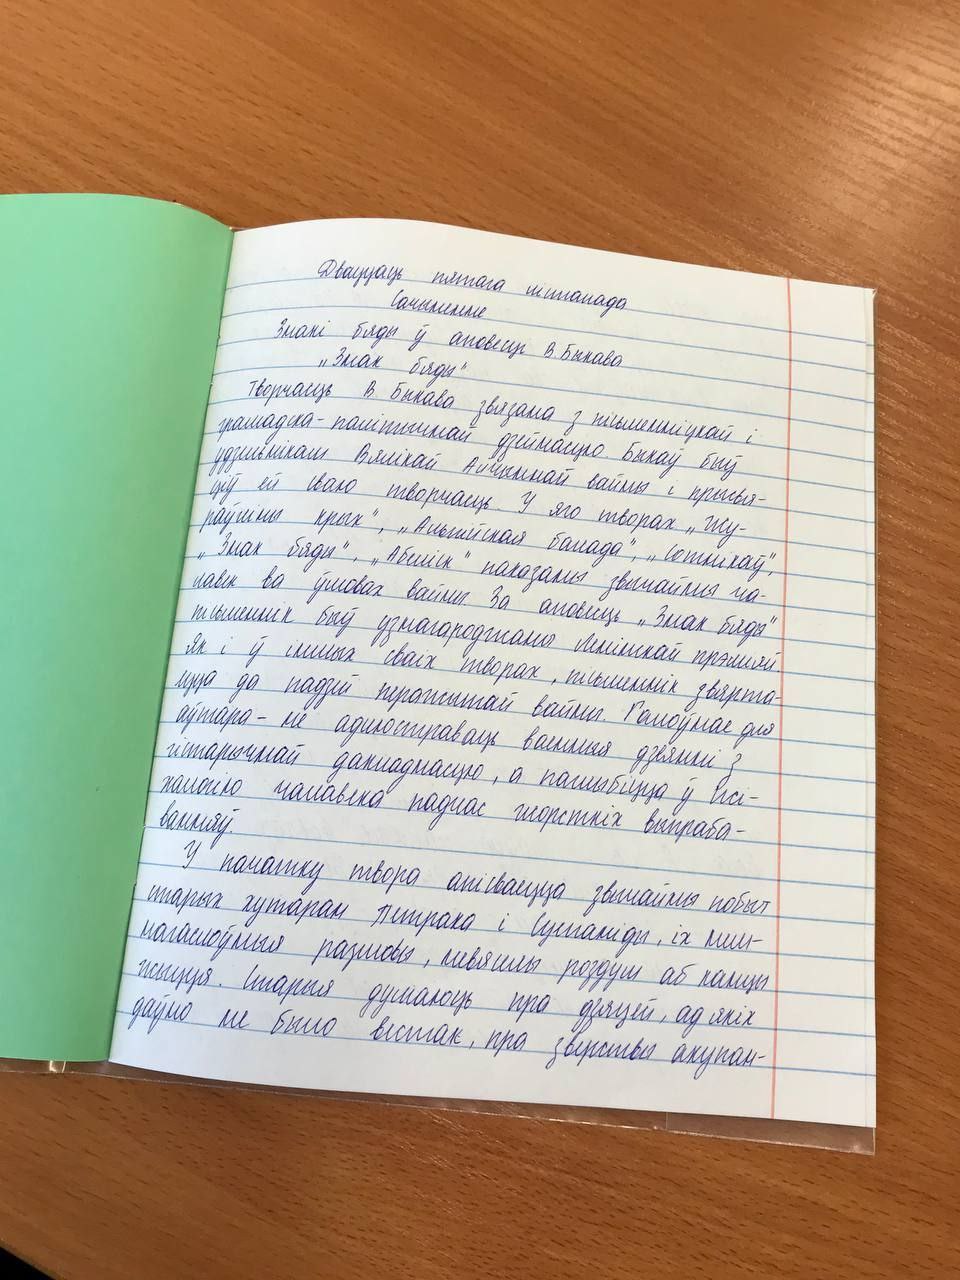 Дваццаць пятага лістапада
Сачыненне
Знакі бяды ў аповесці В Быкава
„Знак бяды"
Творчасць В Быкава звязана з пісьменніцкай і
грамадска-палітычнай дзейнасцю. Быкаў быў
удзельнікам Вялікай Айчыннай вайны і прысвя-
ціў ей сваю творчасць. У яго творах „Жу-
раўліны крык", „Альпійская балада", „Сотнікаў",
„Знак бяды", „Абеліск" паказаны звычайны ча-
лавек ва ўмовах вайны. За аповесць „Знак бяды"
пісьменнік быў узнагароджаны Ленінскай прэміяй
Як і ў іншых сваіх творах, пісьменнік звярта-
ецца да падзей перажытай вайны. Галоўнае для
аўтара - не адлюстраваць ваенныя дзеянні з
гістарычнай дакладнасцю, а паглыбіцца ў псі-
халогію чалавека падчас жорсткіх выпраба-
ванняў.
У пачатку твора апісваецца звычайны побыт
старых хутаран Петрака і Сцепаніды, іх
магаслоўныя размовы, невясёлы роздум аб канцы
жыцця. Старыя думаюць пра дзяцей, ад якіх
даўно не было вестак, пра зверствы акупан-